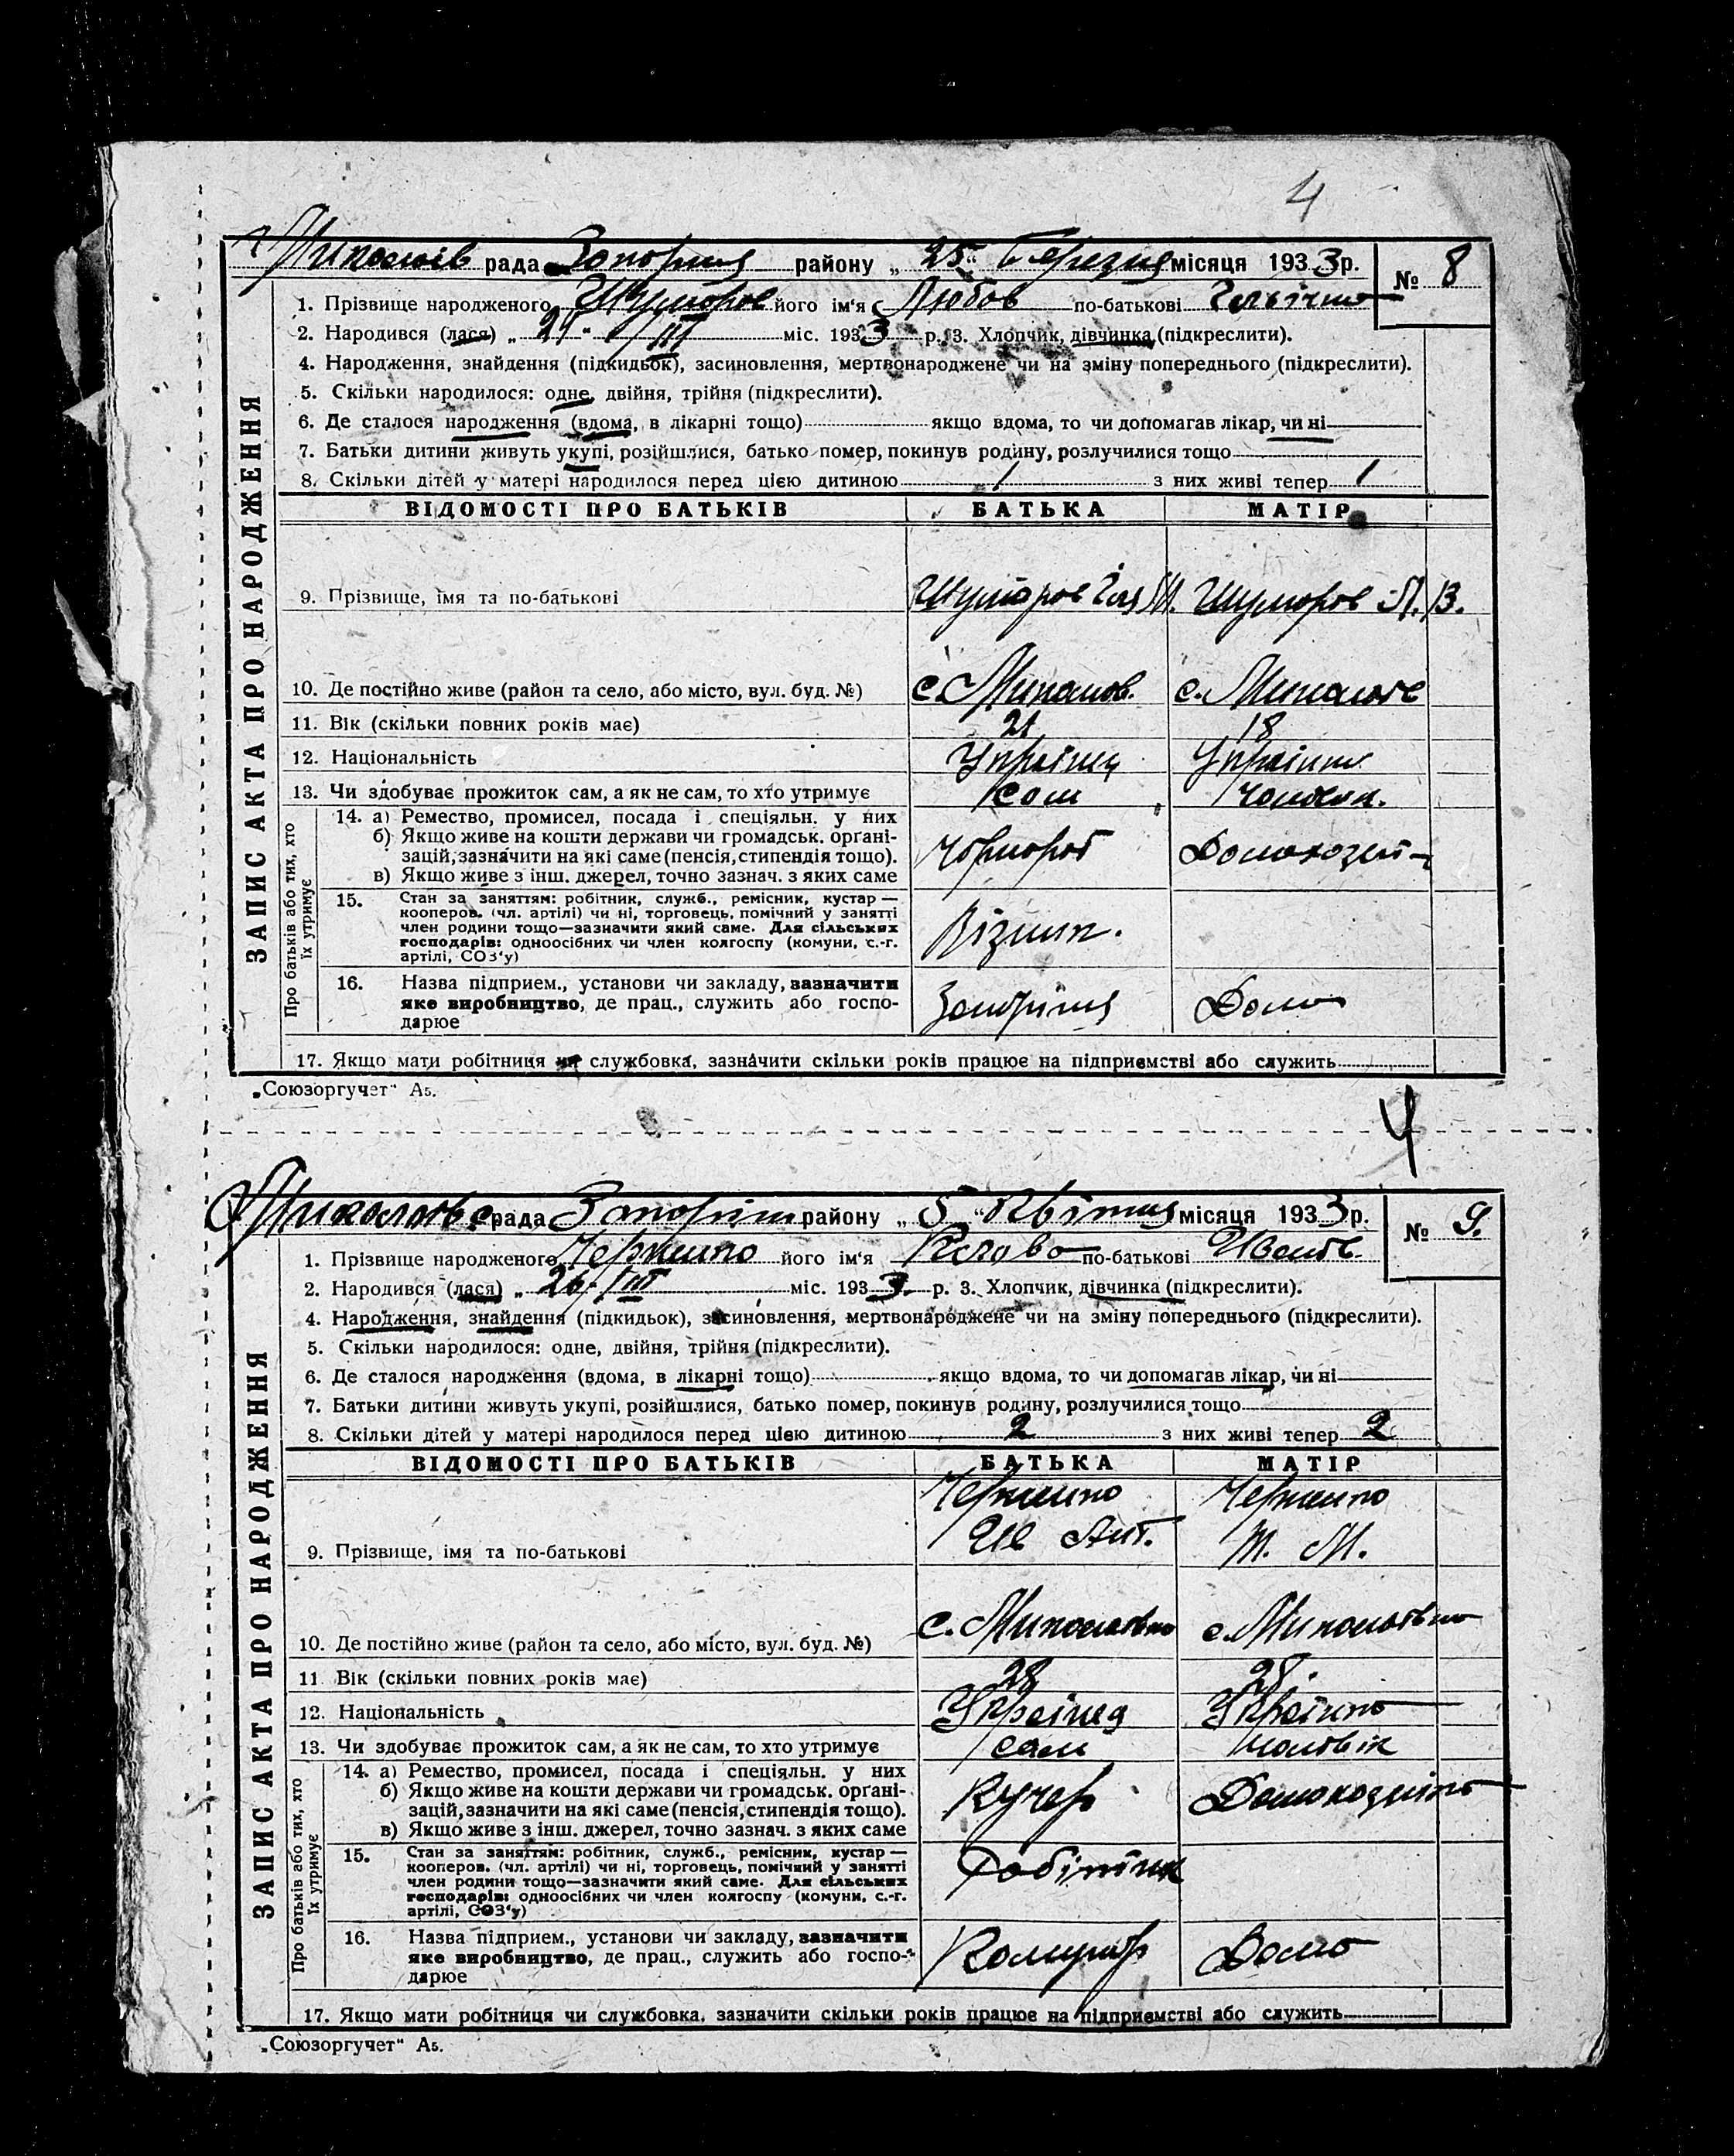 4
рада районну „ 25 “ Березня місяця 1933 р. № 8
1. Прізвище народженого його ім‘я Любов по-батькові
2. Народився (лася) „ 21 “ III міс. 1933 р. 3. Хлопчик, дівчинка (підкреслити).
4. Народження, знайдення (підкидьок), засиновлення, мертвонароджене чи на зміну попереднього (підкреслити).
5. Скільки народилося: одне, двійня, трійня (підкреслити).
6. Де сталося народження (вдома, в лікарні тощо) якщо вдома, то чи допомагав лікар, чи ні
7. Батьки дитини живуть укупі, розійшлися, батько помер, покинув родину, розлучилися тощо
8. Скільки дітей у матері народилося перед цією дитиною 1 з них живі тепер 1
ЗАПИС АКТА ПРО НАРОДЖЕННЯ
ВІДОМОСТІ ПРО БАТЬКІВ БАТЬКА МАТІР
9. Прізвище, імя та по-батькові
10. Де постійно живе (район та село, або місто, вул. буд. №) с. с.
11. Вік (скільки повних років має) 21 18
12. Національність Українец Українка
13. Чи здобуває прожиток сам, а як не сам, то хто утримує сам чоловік
Про батьків або тих, хто їх утримує
14. а) Ремество, промисел, посада і спеціяльн. у них
б) Якщо живе на кошти держави чи громадськ. орґані-
зацій, зазначити на які саме (пенсія, стипендія тощо). Чорнороб Домохозяй
в) Якщо живе з інш. джерел, точно зазнач. з яких саме
15. Стан за заняттям: робітник, служб., ремісник, кустар —
кооперов. (чл. артілі) чи ні, торговець, помічний у занятті
член родини тощо—зазначити який саме. Для сільських
господарів: одноосібних чи член колгоспу (комуни, с.-г.
артілі, СОЗ‘у)
16. Назва підприєм., установи чи закладу, зазначити
яке виробництво, де прац., служить або госпо-
дарює Дома
17. Якщо мати робітниця чи службовка, зазначити скільки років працює на підприємстві або служить
„Союзоргучет“ А5.
4
рада району „ 5 “ Квітня місяця 1933 р. № 9.
1. Прізвище народженого його ім‘я по-батькові
2. Народився (лася) „ 26 III міс. 1933 р. 3. Хлопчик, дівчинка (підкреслити).
4. Народження, знайдення (підкидьок), засиновлення, мертвонароджене чи на зміну попереднього (підкреслити).
5. Скільки народилося: одне, двійня, трійня (підкреслити).
6. Де сталося народження (вдома, в лікарні тощо) якщо вдома, то чи допомагав лікар, чи ні
7. Батьки дитини живуть укупі, розійшлися, батько помер, покинув родину, розлучилися тощо
8. Скільки дітей у матері народилося перед цією дитиною 2 з них живі тепер 2
ЗАПИС АКТА ПРО НАРОДЖЕННЯ
ВІДОМОСТІ ПРО БАТЬКІВ БАТЬКА МАТІР
9. Прізвище, імя та по-батькові Ив Ант. М.
10. Де постійно живе (район та село, або місто, вул. буд. №) с. Миколаївка с. Миколаївка
11 Вік (скільки повних років має) 28 28
12. Національність Українец Українка
13. Чи здобуває прожиток сам, а як не сам, то хто утримує сам чоловік
Про батьків або тих, хто їх утримує
14. а) Ремество, промисел, посада і спеціяльн. у них
б) Якщо живе на кошти держави чи громадськ. орґані-
зацій, зазначити на які саме (пенсія, стипендія тощо). Кучер Домохозяйка
в) Якщо живе з інш. джерел, точно зазнач. з яких саме
15. Стан за заняттям: робітник, служб., ремісник, кустар —
кооперов. (чл. артілі) чи ні, торговець, помічний у занятті Робітник
член родини тощо—зазначити який саме. Для сільських
господарів: одноосібних чи член колгоспу (комуни, с.-г.
артілі, СОЗ‘у)
16. Назва підприєм., установи чи закладу, зазначити
яке виробництво, де прац., служить або госпо-
дарює Дома
17. Якщо мати робітниця чи службовка, зазначити скільки років працює на підприємстві або служить
„Союзоргучет“ А5.